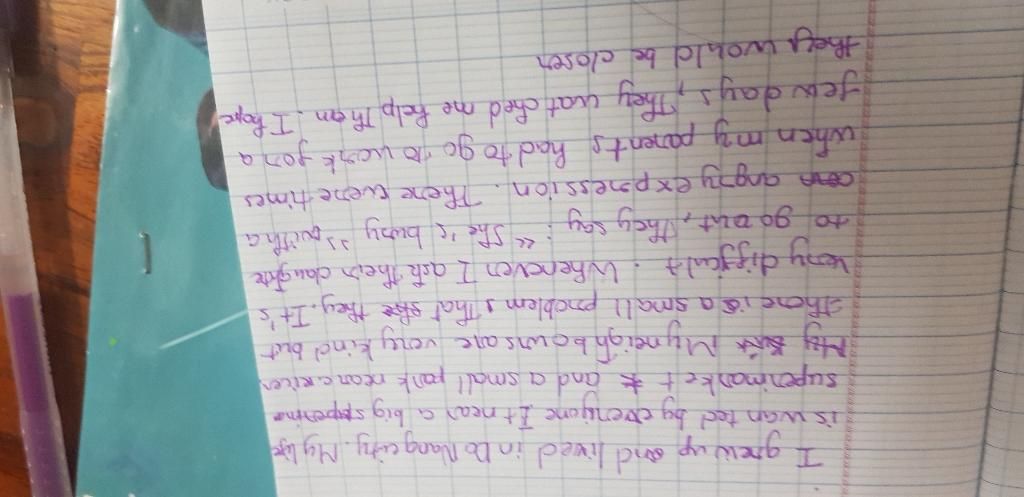 I grew up and lived in Da Nang city. My life
is wanted by everyone It near a big
supermarket and a small park near
My neighbours are very kind but
there is a small problem that they. It's
very difficult. Whenever I ask their daughte
to go out, they say: "She's busy" with a
angry expression. There were times
when my parents had to go to work for a
few days, They watched me help them. I hope
they would be closer